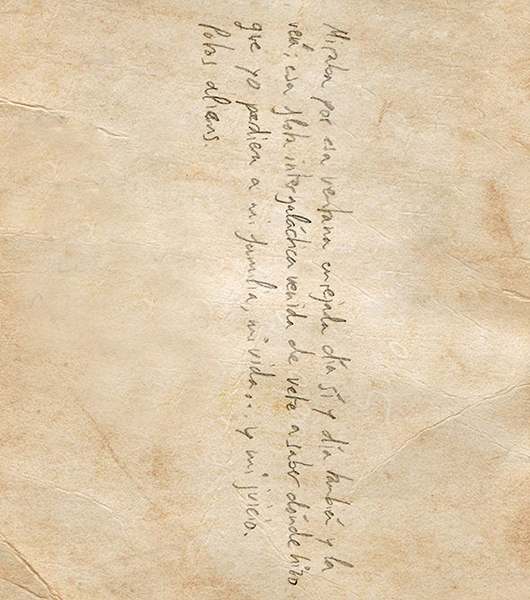 Miraba por esa ventana enrejada día sí y día también y la
veía, esa flota intergaláctica venida de vete a saber dónde hizo
que yo perdiera a mi familia, mi vida... y mi juicio.
Putos aliens.